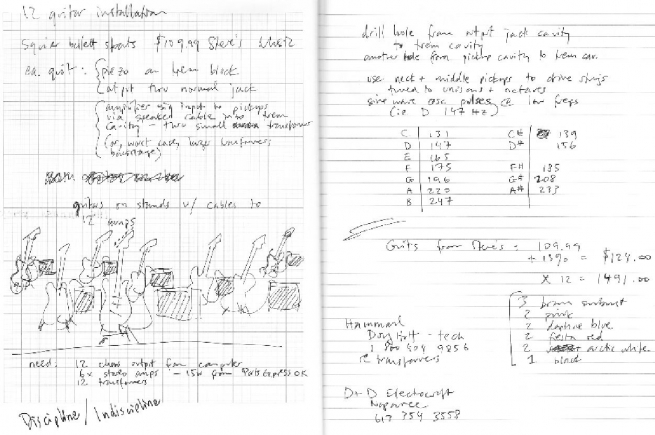 12 guitar installation
Squier bullet strats $109.99 Steve's Music
ea. guit: piezo on trem block
output thru normal jack
amplifier sig input to pickups
via speaker cable into trem
cavity - thru small transformer
(or, worst case, large transformers
guitars on stands w/ cables to
12 amps
need: 12 chan output from computer
6x stereo amps - 15w from Parts Express OK
12 transformers
Discipline / Indiscipline
drill hole from output jack cavity
to trem cavity
another hole from pickup cavity to trem cav.
use neck + middle pickups to drive strings
tuned to unisons + octaves
sine wave osc. pulses @ low freqs
(ie D 147 Hz)
C 131 C# 139
D 147 D# 156
E 165
F 175 F# 185
G 196 G# 208
A 220 A# 233
B 247
Guits from Steve's = 109.99
+ 13% = $124.00
x 12 = 1491.00
3 brown sunburst
2 pink
2 daphne blue
2 fiesta red
2 arctic white
1 black
Hammond
- tech
12 transformers
D+D Electrocraft
617 759 3558